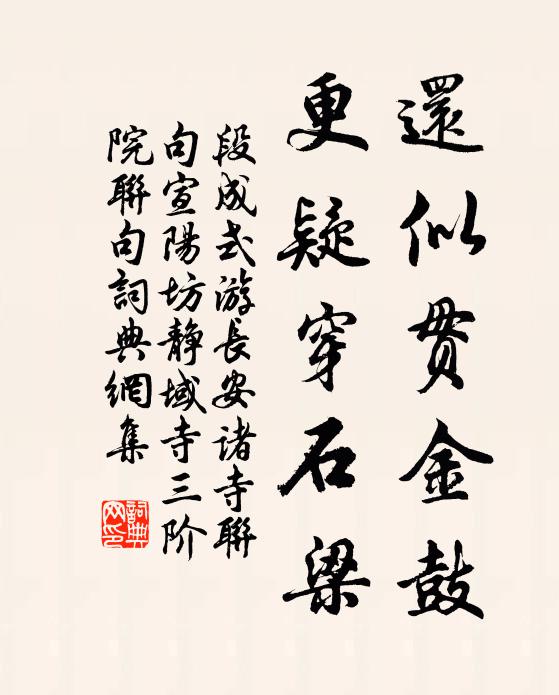 還似贯金鼓
更疑穿石梁
段成式游長安诸寺聯
句宣陽坊靜域寺三阶
院聯句詞典網集
詞典网印